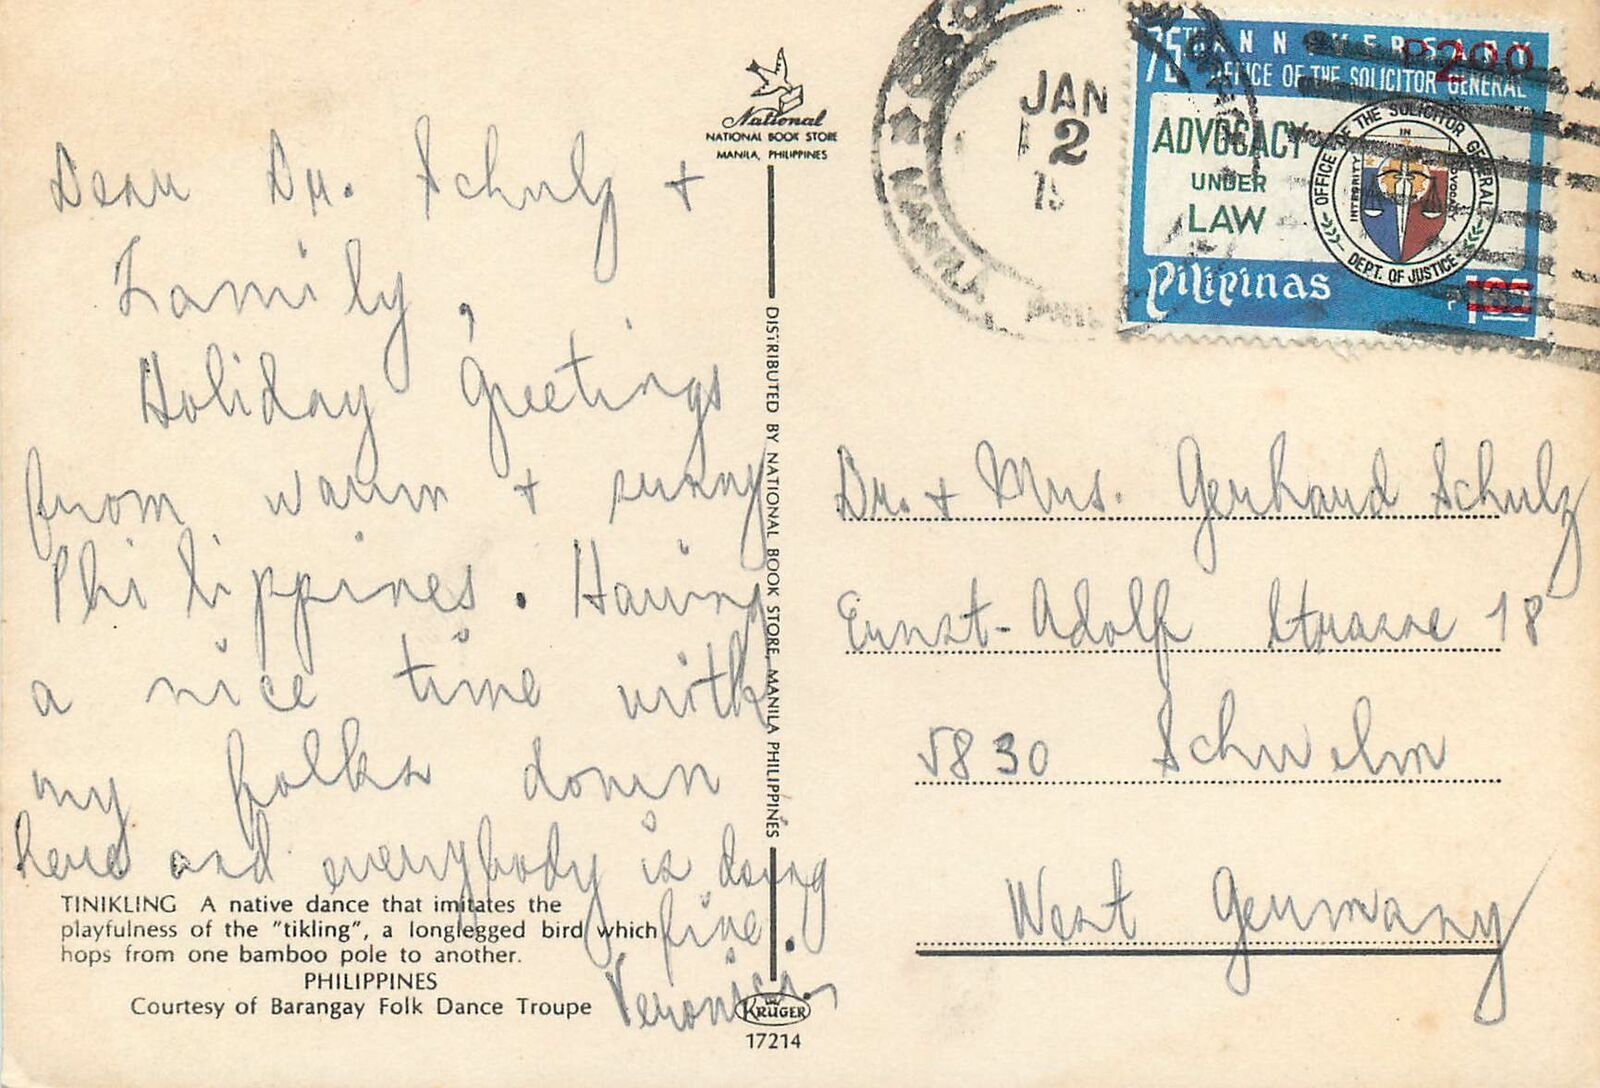 Dear Dr. Schulz +
Family,
Holiday greetings
from warm + sunny
Philippines. Having
a nice time with
my folks down
here and everybody is doing
fine.
Veronica
TINIKLING A native dance that imitates the
playfulness of the "tikling", a longlegged bird which
hops from one bamboo pole to another.
PHILIPPINES
Courtesy of Barangay Folk Dance Troupe
National
NATIONAL BOOK STORE
MANILA, PHILIPPINES
DISTRIBUTED BY NATIONAL BOOK STORE, MANILA PHILIPPINES
KRÜGER
17214
JAN
2
MANILA
75TH ANNIVERSARY
OFFICE OF THE SOLICITOR GENERAL
P200
ADVOCACY
UNDER
LAW
OFFICE OF THE SOLICITOR GENERAL
IN
INTEGRITY
ADVOCACY
DEPT. OF JUSTICE
Pilipinas
Dr. + Mrs. Gerhard Schulz
Ernst-Adolf Strasse 18
5830 Schwelm
West Germany